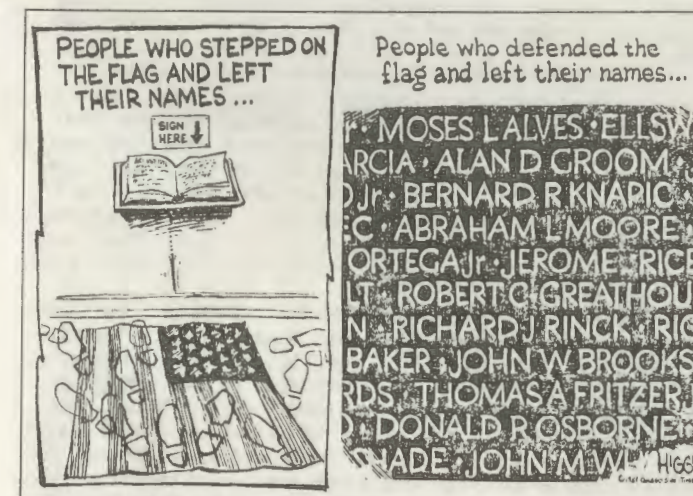 PEOPLE WHO STEPPED ON
THE FLAG AND LEFT
THEIR NAMES ...
SIGN
HERE
People who defended the
flag and left their names...
MOSES L ALVES • ELLSW
ARCIA • ALAN D GROOM •
Jr • BERNARD R KNAPIC
C • ABRAHAM L MOORE
ORTEGA Jr • JEROME RICE
LT • ROBERT C GREATHOU
N • RICHARD J RINCK • RIC
BAKER • JOHN W BROOKS
RDS • THOMAS A FRITZER
DONALD R OSBORNE
SHADE • JOHN M WH
HIGG